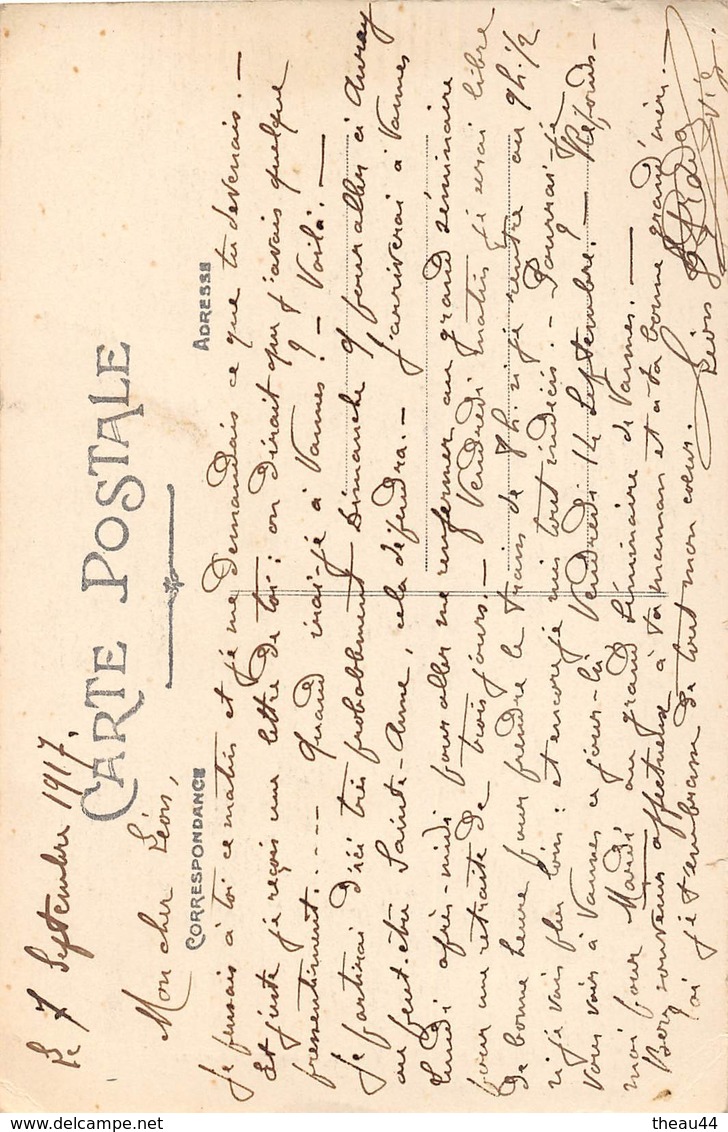 Le 7 Septembre 1917.
CARTE POSTALE
Mon cher Léon,
CORRESPONDANCE
ADRESSE
Je pensais à toi ce matin et je me demandais ce que tu devenais. —
Et juste je reçois une lettre de toi : on dirait que j'avais quelque
pressentiment..... Quand irai-je à Vannes ? — Voilà. —
Je partirai d'ici très probablement Dimanche 9 pour aller à Auray
ou peut-être Sainte-Anne, cela dépendra. — J'arriverai à Vannes
Lundi après-midi pour aller me renfermer au grand séminaire
pour une retraite de trois jours. — Vendredi matin je serai libre
de bonne heure pour prendre le train de 8h. si je rentre ou 9h.1/2
si je vais plus loin : et encore je suis tout indécis. — Pourrai-je
vous voir à Vannes ce jour-là Vendredi 14 Septembre ? — Réponds-
moi pour Mardi au grand Séminaire de Vannes. —
Bon souvenir affectueux à ta maman et à ta bonne grand'mère. —
Toi je t'embrasse de tout mon cœur.
Léon
theau44